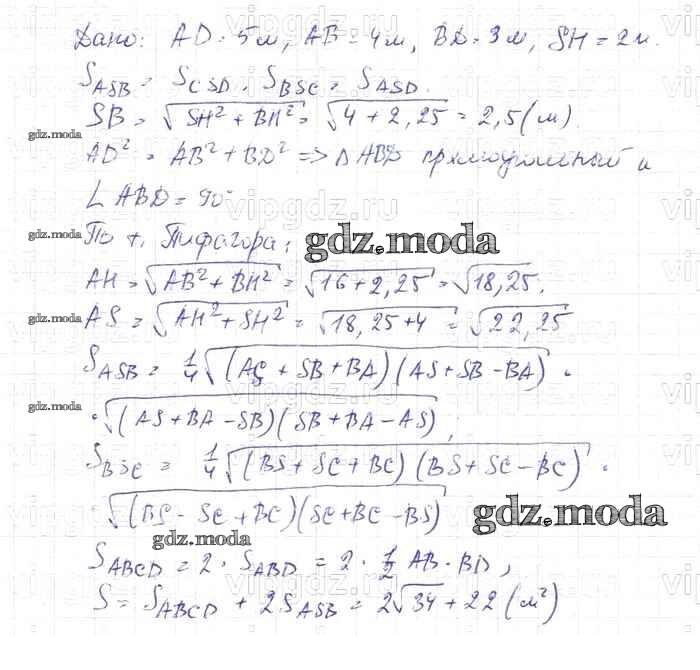 Дано: AD = 5 м, AB = 4 м, BD = 3 м, SH = 2 м.
S_ASB = S_CSD. S_BSC = S_ASD.
SB = √(SH² + BH²) = √(4 + 2,25) = 2,5 (м).
gdz.moda
AD² = AB² + BD² => △ ABD прямоугольный и
∠ ABD = 90°
gdz.moda По т. Пифагора: gdz.moda
AH = √(AB² + BH²) = √(16 + 2,25) = √18,25.
gdz.moda AS = √(AH² + SH²) = √(18,25 + 4) = √22,25
S_ASB = 1/4 √((AS + SB + BA)(AS + SB - BA)) ·
gdz.moda · √((AS + BA - SB)(SB + BA - AS)),
S_BSC = 1/4 √((BS + SC + BC)(BS + SC - BC)) ·
√((BS - SC + BC)(SC + BC - BS)) gdz.moda
gdz.moda
S_ABCD = 2 · S_ABD = 2 · 1/2 AB · BD,
S = S_ABCD + 2S_ASB = 2√34 + 22 (м²)
vipgdz.ru